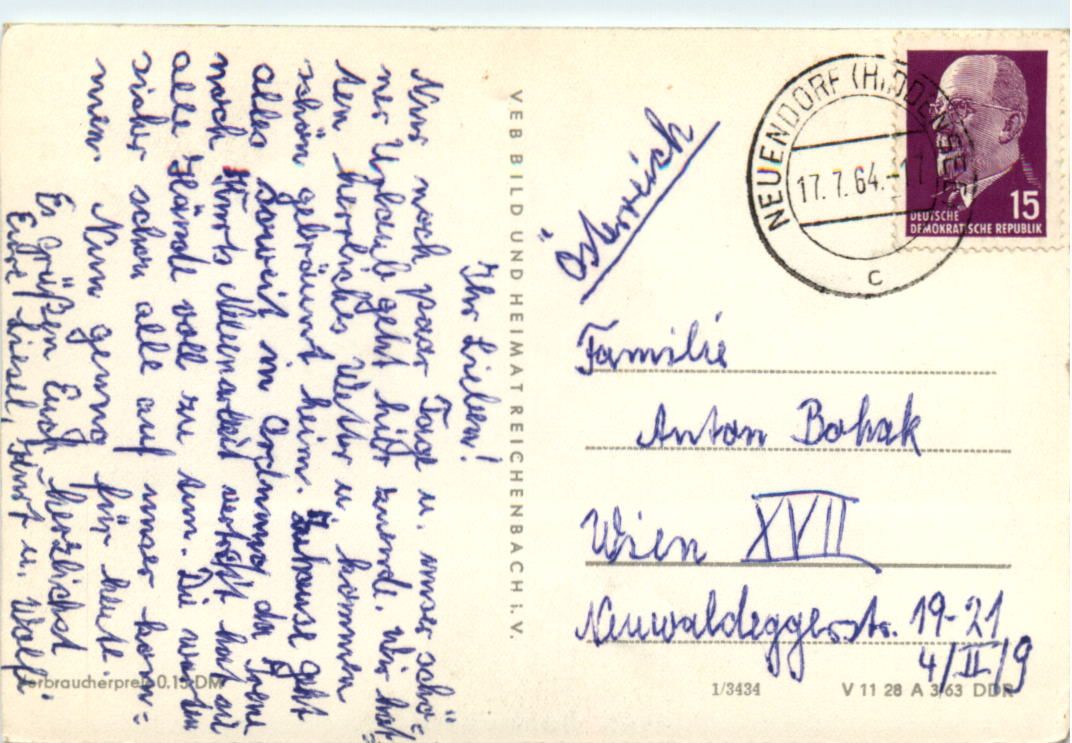 Ihr Lieben!
Nur noch paar Tage u. unser schö=
ner Urlaub geht hier zuende. Wir hat=
ten herrliches Wetter u. kommen
schön gebräunt heim. Zuhause geht
alles soweit in Ordnung da Irene
noch Kurts Nebenarbeit hat er
alle Hände voll zu tun. Die warten
sicher schon alle auf unser kom=
men. Nun genug für heute.
Es grüßen Euch herzlichst
Eure Liesel, Kurt u. Wolfi.
VEB BILD UND HEIMAT REICHENBACH i. V.
Verbraucherpreis 0.15 DM
NEUENDORF (HIDDENSEE)
17.7.64.-17
c
15
DEUTSCHE
DEMOKRATISCHE REPUBLIK
Österreich
Familie
Anton Bohak
Wien XVII
Neuwaldeggerstr. 19-21
4/II/9
1/3434
V 11 28 A 3/63 DDR